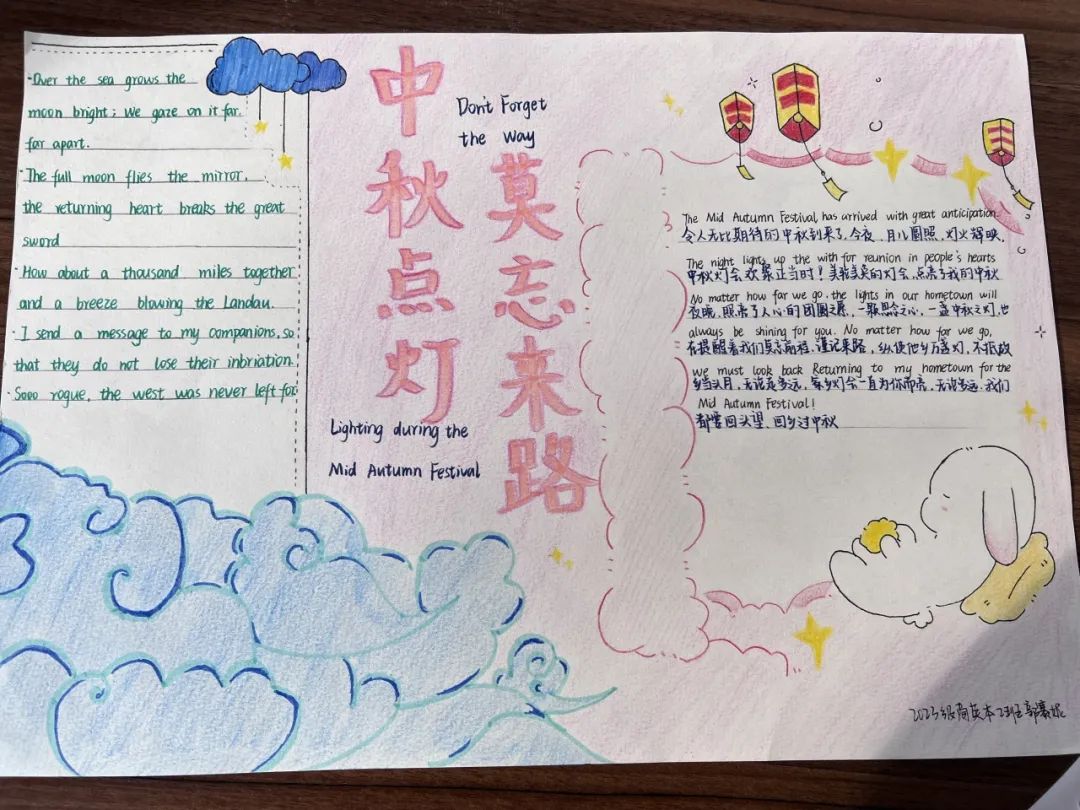 ·Over the sea grows the
moon bright; We gaze on it far,
far apart.
·The full moon flies the mirror,
the returning heart breaks the great
sword
·How about a thousand miles together
and a breeze blowing the Landau.
·I send a message to my companions, so
that they do not lose their inbriation.
·Sooo rogue, the west was never left for
中秋点灯
Don't Forget
the way
莫忘来路
Lighting during the
Mid Autumn Festival
The Mid Autumn Festival has arrived with great anticipation.
令人无比期待的中秋到来了,今夜,月儿圆照,灯火辉映,
The night lights up the with for reunion in people's hearts
中秋灯会欢聚正当时!美轮美奂的灯会,点亮了我的中秋
No matter how far we go, the lights in our hometown will
夜晚,照亮了人心的团圆之愿,一颗思念之心,一盏中秋之灯,也
always be shining for you. No matter how far we go,
在提醒着我们莫忘前程,谨记来路,纵使他乡万盏灯,不抵故
we must look back Returning to my hometown for the
乡当头月,无论走多远,家乡灯会一直为你而亮,无论多远,我们
Mid Autumn Festival!
都要回头望,回乡过中秋
2023级商英本2班